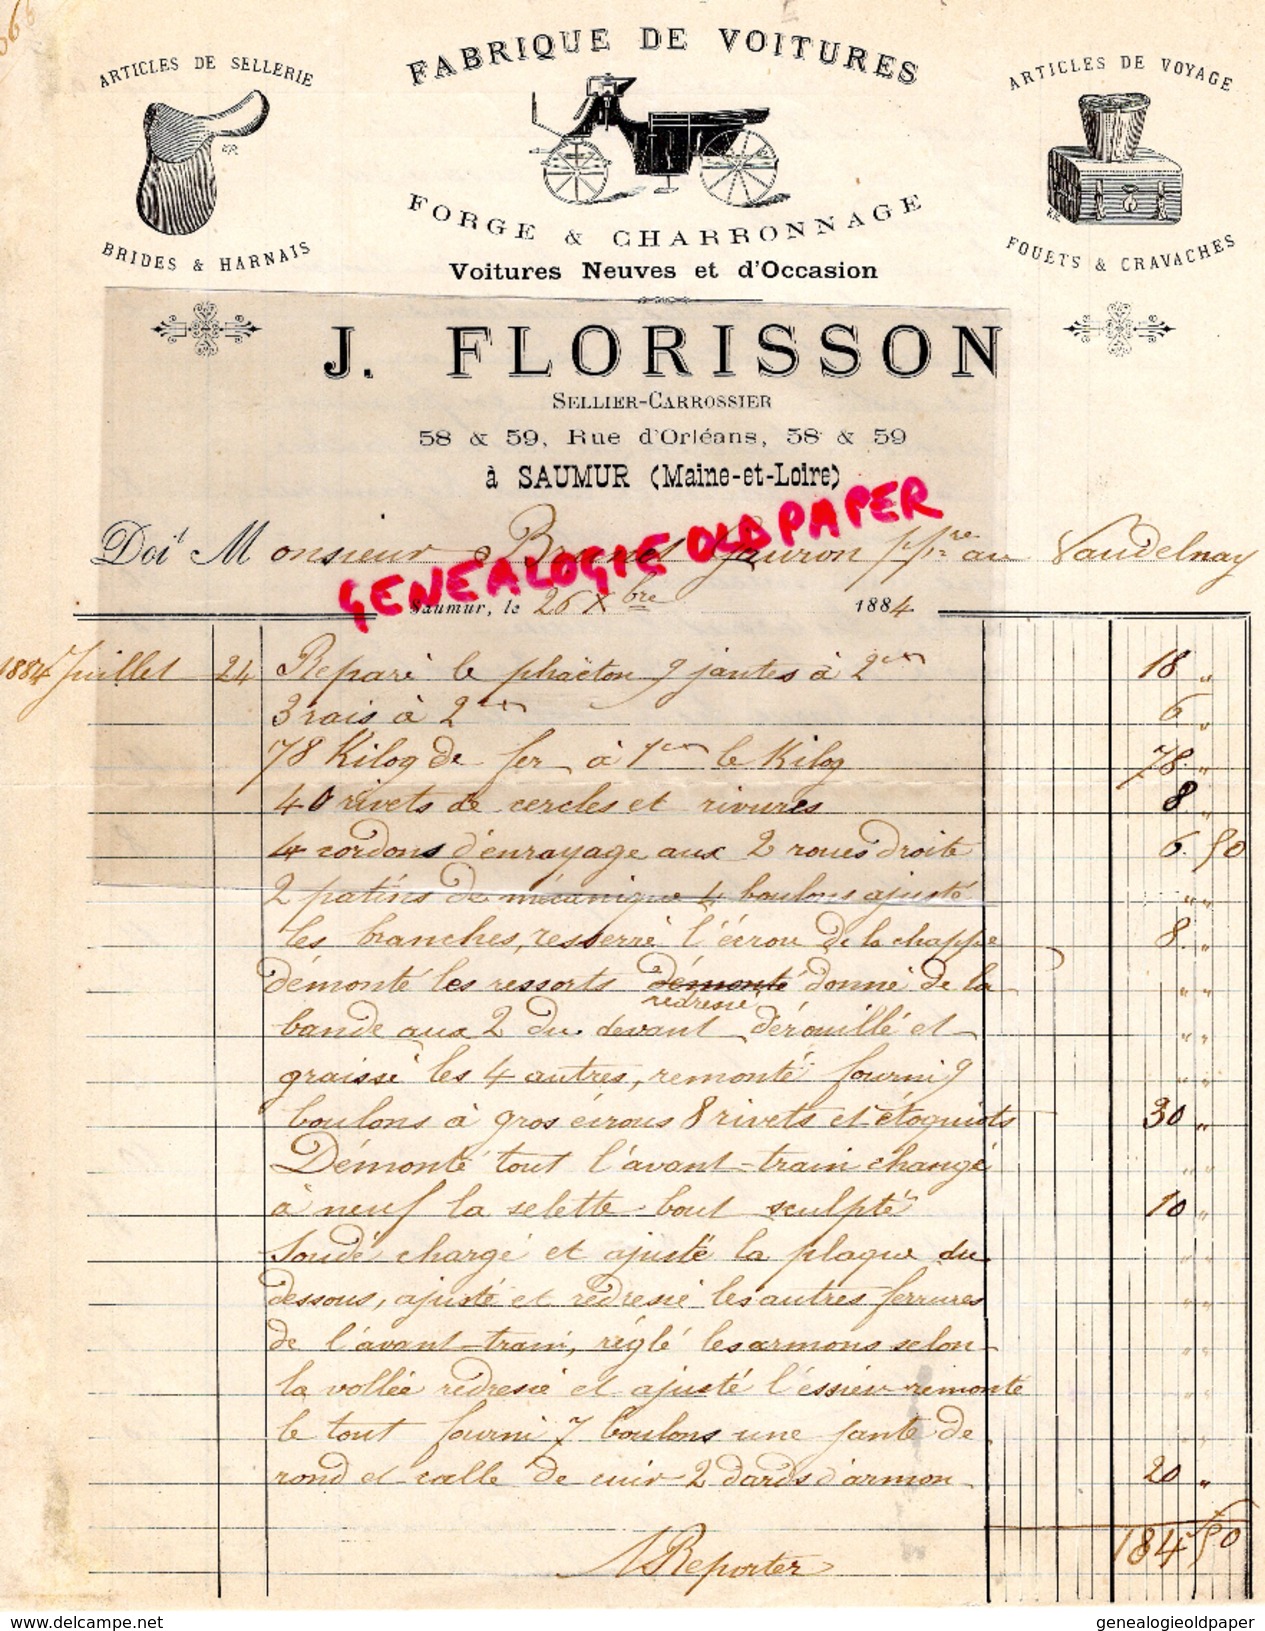 ARTICLES DE SELLERIE
BRIDES & HARNAIS
FABRIQUE DE VOITURES
FORGE & CHARRONNAGE
Voitures Neuves et d'Occasion
ARTICLES DE VOYAGE
FOUETS & CRAVACHES
J. FLORISSON
SELLIER-CARROSSIER
58 & 59, Rue d'Orléans, 58 & 59
à SAUMUR (Maine-et-Loire)
GENEALOGIE OLD PAPER
Doit Monsieur Brunet ppre au Vaudelnay
Saumur, le 26 Xbre 1884
1884 Juillet 24 Réparé le phaëton 9 jantes à 2 18 "
3 rais à 2 6 "
78 Kilog de fer à 1 le Kilog 78 "
40 rivets de cercles et rivures 8 "
4 cordons d'enrayage aux 2 roues droite 6. 50
2 patins de mécanique 4 boulons ajusté " "
les branches, resserré l'écrou de la chappe 8. "
démonté les ressorts démonté donné de la " "
redresié
bande aux 2 du devant dérouillé et " "
graissé les 4 autres, remonté fourni 9 " "
boulons à gros écrous 8 rivets et étoquiots 30 "
Démonté tout l'avant-train changé " "
à neuf la selette bout sculpté 10 "
Soudé chargé et ajusté la plaque du " "
dessous, ajusté et redresié les autres ferrures " "
de l'avant-train, réglé les armons selon " "
la vollée redresié et ajusté l'éssieu remonté
le tout fourni 7 boulons une jante de
rond et calle de cuir 2 dards d'armon 20 "
A Reporter 184 50
www.delcampe.net
genealogieoldpaper